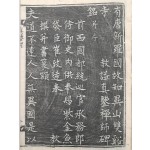 有唐新羅國故知異山雙谿
寺教謚真鑒禪師碑
銘并序
前西國都統巡官承務郎
侍御史內供奉賜紫金魚
袋臣崔致遠奉 教
撰并書篆額
夫道不遠人人無異國是以